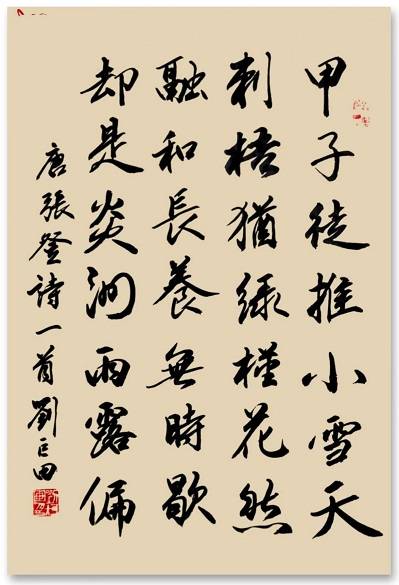 甲子徒推小雪天
刺梧猶緑槿花然
融和長養無時歇
却是炎洲雨露偏
唐張登詩一首劉巨田